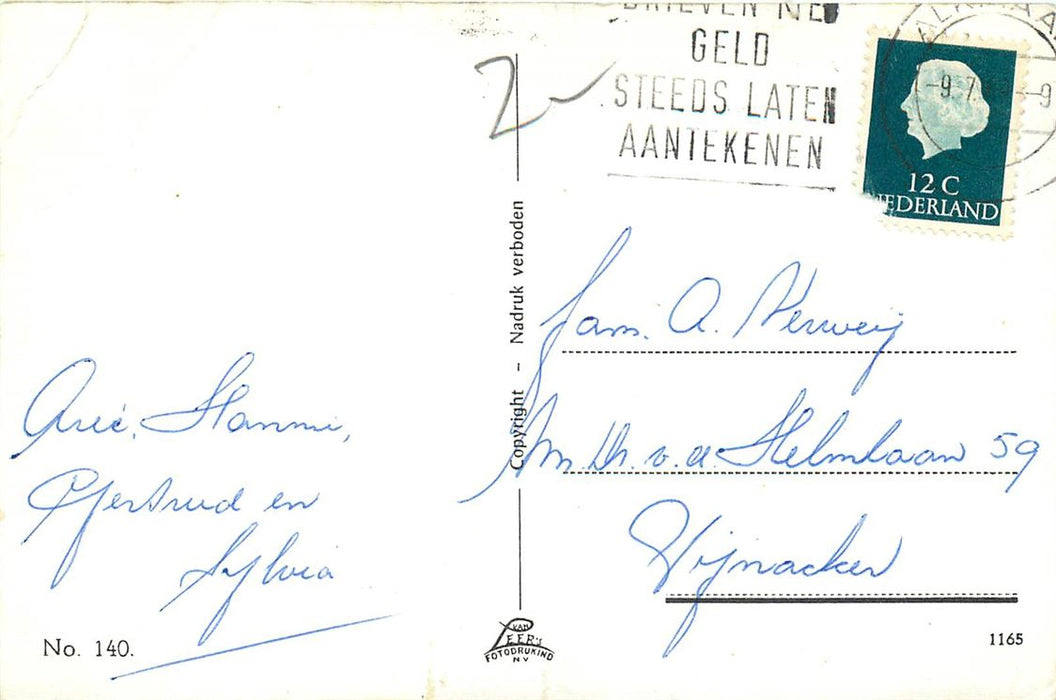 BRIEVEN MET
GELD
STEEDS LATEN
AANTEKENEN
ALKMAAR
-9.7
-9
12 C
NEDERLAND
2
Fam. A. Verweij
v.d. Helmlaan 59
Pijnacker
Arie, Hannie,
Gertrud en
Sylvia
Copyright - Nadruk verboden
No. 140.
VAN
LEER's
FOTODRUKIND
NV
1165